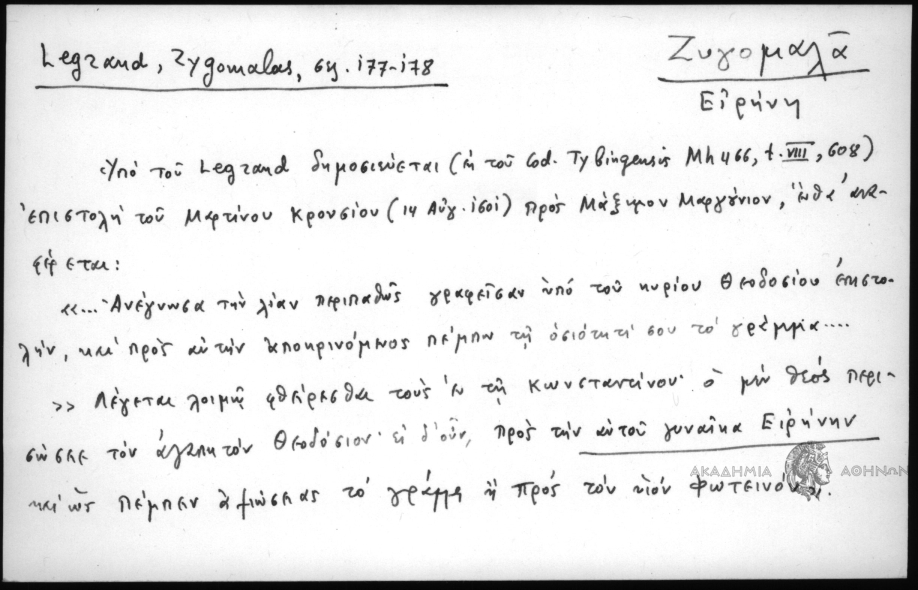 Legrand, Zygomalas, σχ. 177-178
Ζυγομαλᾶ
Εἰρήνη
Ὑπό τοῦ Legrand δημοσιεύεται (ἐκ τοῦ Cod. Tybingensis Mh 466, t. VIII, 608)
ἐπιστολή τοῦ Μαρτίνου Κρουσίου (14 Αὐγ. 1601) πρός Μάξιμον Μαργούνιον, ἔνθα ἀνα-
φέρεται:
«... Ἀνέγνωσα τὴν λίαν περιπαθῶς γραφεῖσαν ὑπό τοῦ κυρίου Θεοδοσίου ἐπιστο-
λήν, καί πρός αὐτήν ἀποκρινόμενος πέμπω τῇ ὁσιότητί σου τό γράμμα....
>> Λέγεται λοιμῷ φθείρεσθαι τούς ἐν τῇ Κωνσταντίνου· ὁ μέν θεός περι-
σώσειε τόν ἀγαπητόν Θεοδόσιον· εἰ δ' οὖν, πρός τήν αὐτοῦ γυναῖκα Εἰρήνην
καί ὥς πέμπειν ἀξιώσειας τό γράμμα ἤ πρός τόν υἱόν Φωτεινόν».
ΑΚΑΔΗΜΙΑ ΑΘΗΝΩΝ